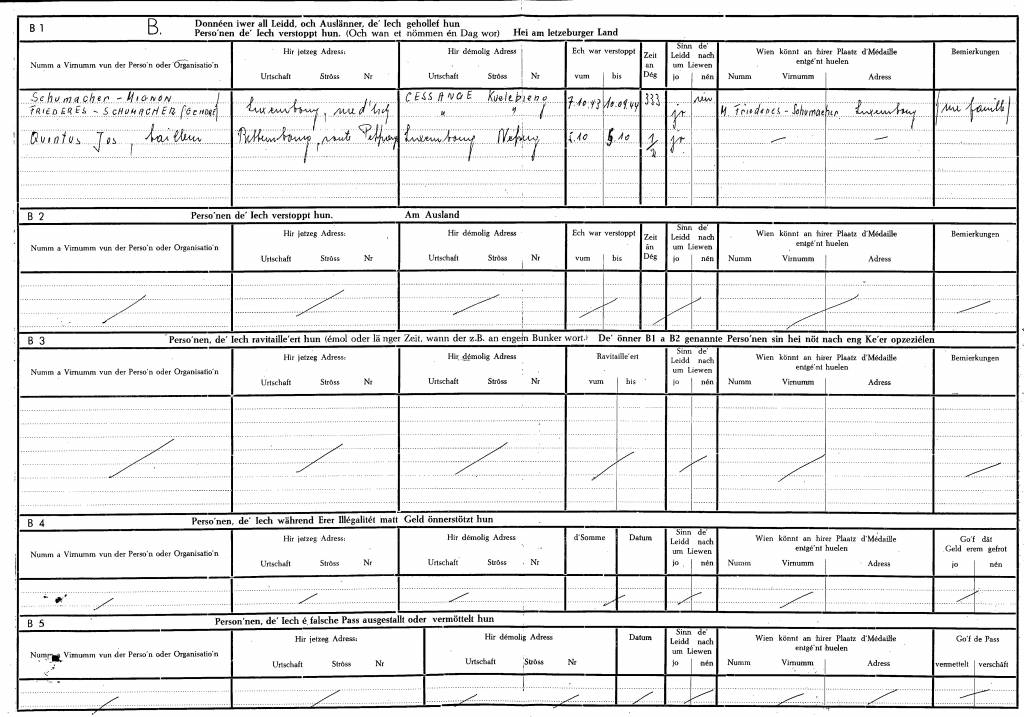 B 1 B. Donnéen iwer all Leidd, och Auslänner, de' Iech gehollef hun
Perso'nen de' Iech verstoppt hun. (Och wan et nömmen én Dag wor) Hei am letzeburger Land
Numm a Virnumm vun der Perso'n oder Organisatio'n
Hir jetzeg Adress:
Urtschaft Ströss Nr
Hir démolig Adress
Urtschaft Ströss Nr
Ech war verstoppt
vum bis
Zeit
an
Dég
Sinn de'
Leidd nach
um Liewen
jo nén
Wien könnt an hirer Plaatz d'Médaille
entgé'nt huelen
Numm Virnumm Adress
Bemierkungen
Schumacher - MIGNON
FRIEDERES - SCHUMACHER Luxembourg, CESSANGE 7.10.43 10.09.44 333 jo nén M. Friederes - Schumacher Luxembourg
Quintus Jos, Luxembourg 5.10 1/2 jo — —
B 2 Perso'nen de' Iech verstoppt hun. Am Ausland
Numm a Virnumm vun der Perso'n oder Organisatio'n
Hir jetzeg Adress:
Urtschaft Ströss Nr
Hir démolig Adress
Urtschaft Ströss Nr
Ech war verstoppt
vum bis
Zeit
än
Dég
Sinn de'
Leidd nach
um Liewen
jo nén
Wien könnt an hirer Plaatz d'Médaille
entgé'nt huelen
Numm Virnumm Adress
Bemierkungen
B 3 Perso'nen, de' Iech ravitaille'ert hun (émol oder länger Zeit, wann der z.B. an engem Bunker wort.) De' önner B1 a B2 genannte Perso'nen sin hei nöt nach eng Ke'er opzeziélen
Numm a Virnumm vun der Perso'n oder Organisatio'n
Hir jetzeg Adress:
Urtschaft Ströss Nr
Hir démolig Adress
Urtschaft Ströss Nr
Ravitaille'ert
vum bis
Sinn de'
Leidd nach
um Liewen
jo nén
Wien könnt an hirer Plaatz d'Médaille
entgé'nt huelen
Numm Virnumm Adress
Bemierkungen
B 4 Perso'nen, de' Iech während Erer Illégalitét matt Geld önnerstötzt hun
Numm a Virnumm vun der Perso'n oder Organisatio'n
Hir jetzeg Adress:
Urtschaft Ströss Nr
Hir démolig Adress
Urtschaft Ströss Nr
d'Somme
Datum
Sinn de'
Leidd nach
um Liewen
jo nén
Wien könnt an hirer Plaatz d'Médaille
entgé'nt huelen
Numm Virnumm Adress
Go'f dät
Geld erem gefrot
jo nén
B 5 Person'nen, de' Iech é falsche Pass ausgestallt oder vermöttelt hun
Numm a Virnumm vun der Perso'n oder Organisatio'n
Hir jetzeg Adress:
Urtschaft Ströss Nr
Hir démolig Adress
Urtschaft Ströss Nr
Datum
Sinn de'
Leidd nach
um Liewen
jo nén
Wien könnt an hirer Plaatz d'Médaille
entgé'nt huelen
Numm Virnumm Adress
Go'f de Pass
vermettelt verschäft